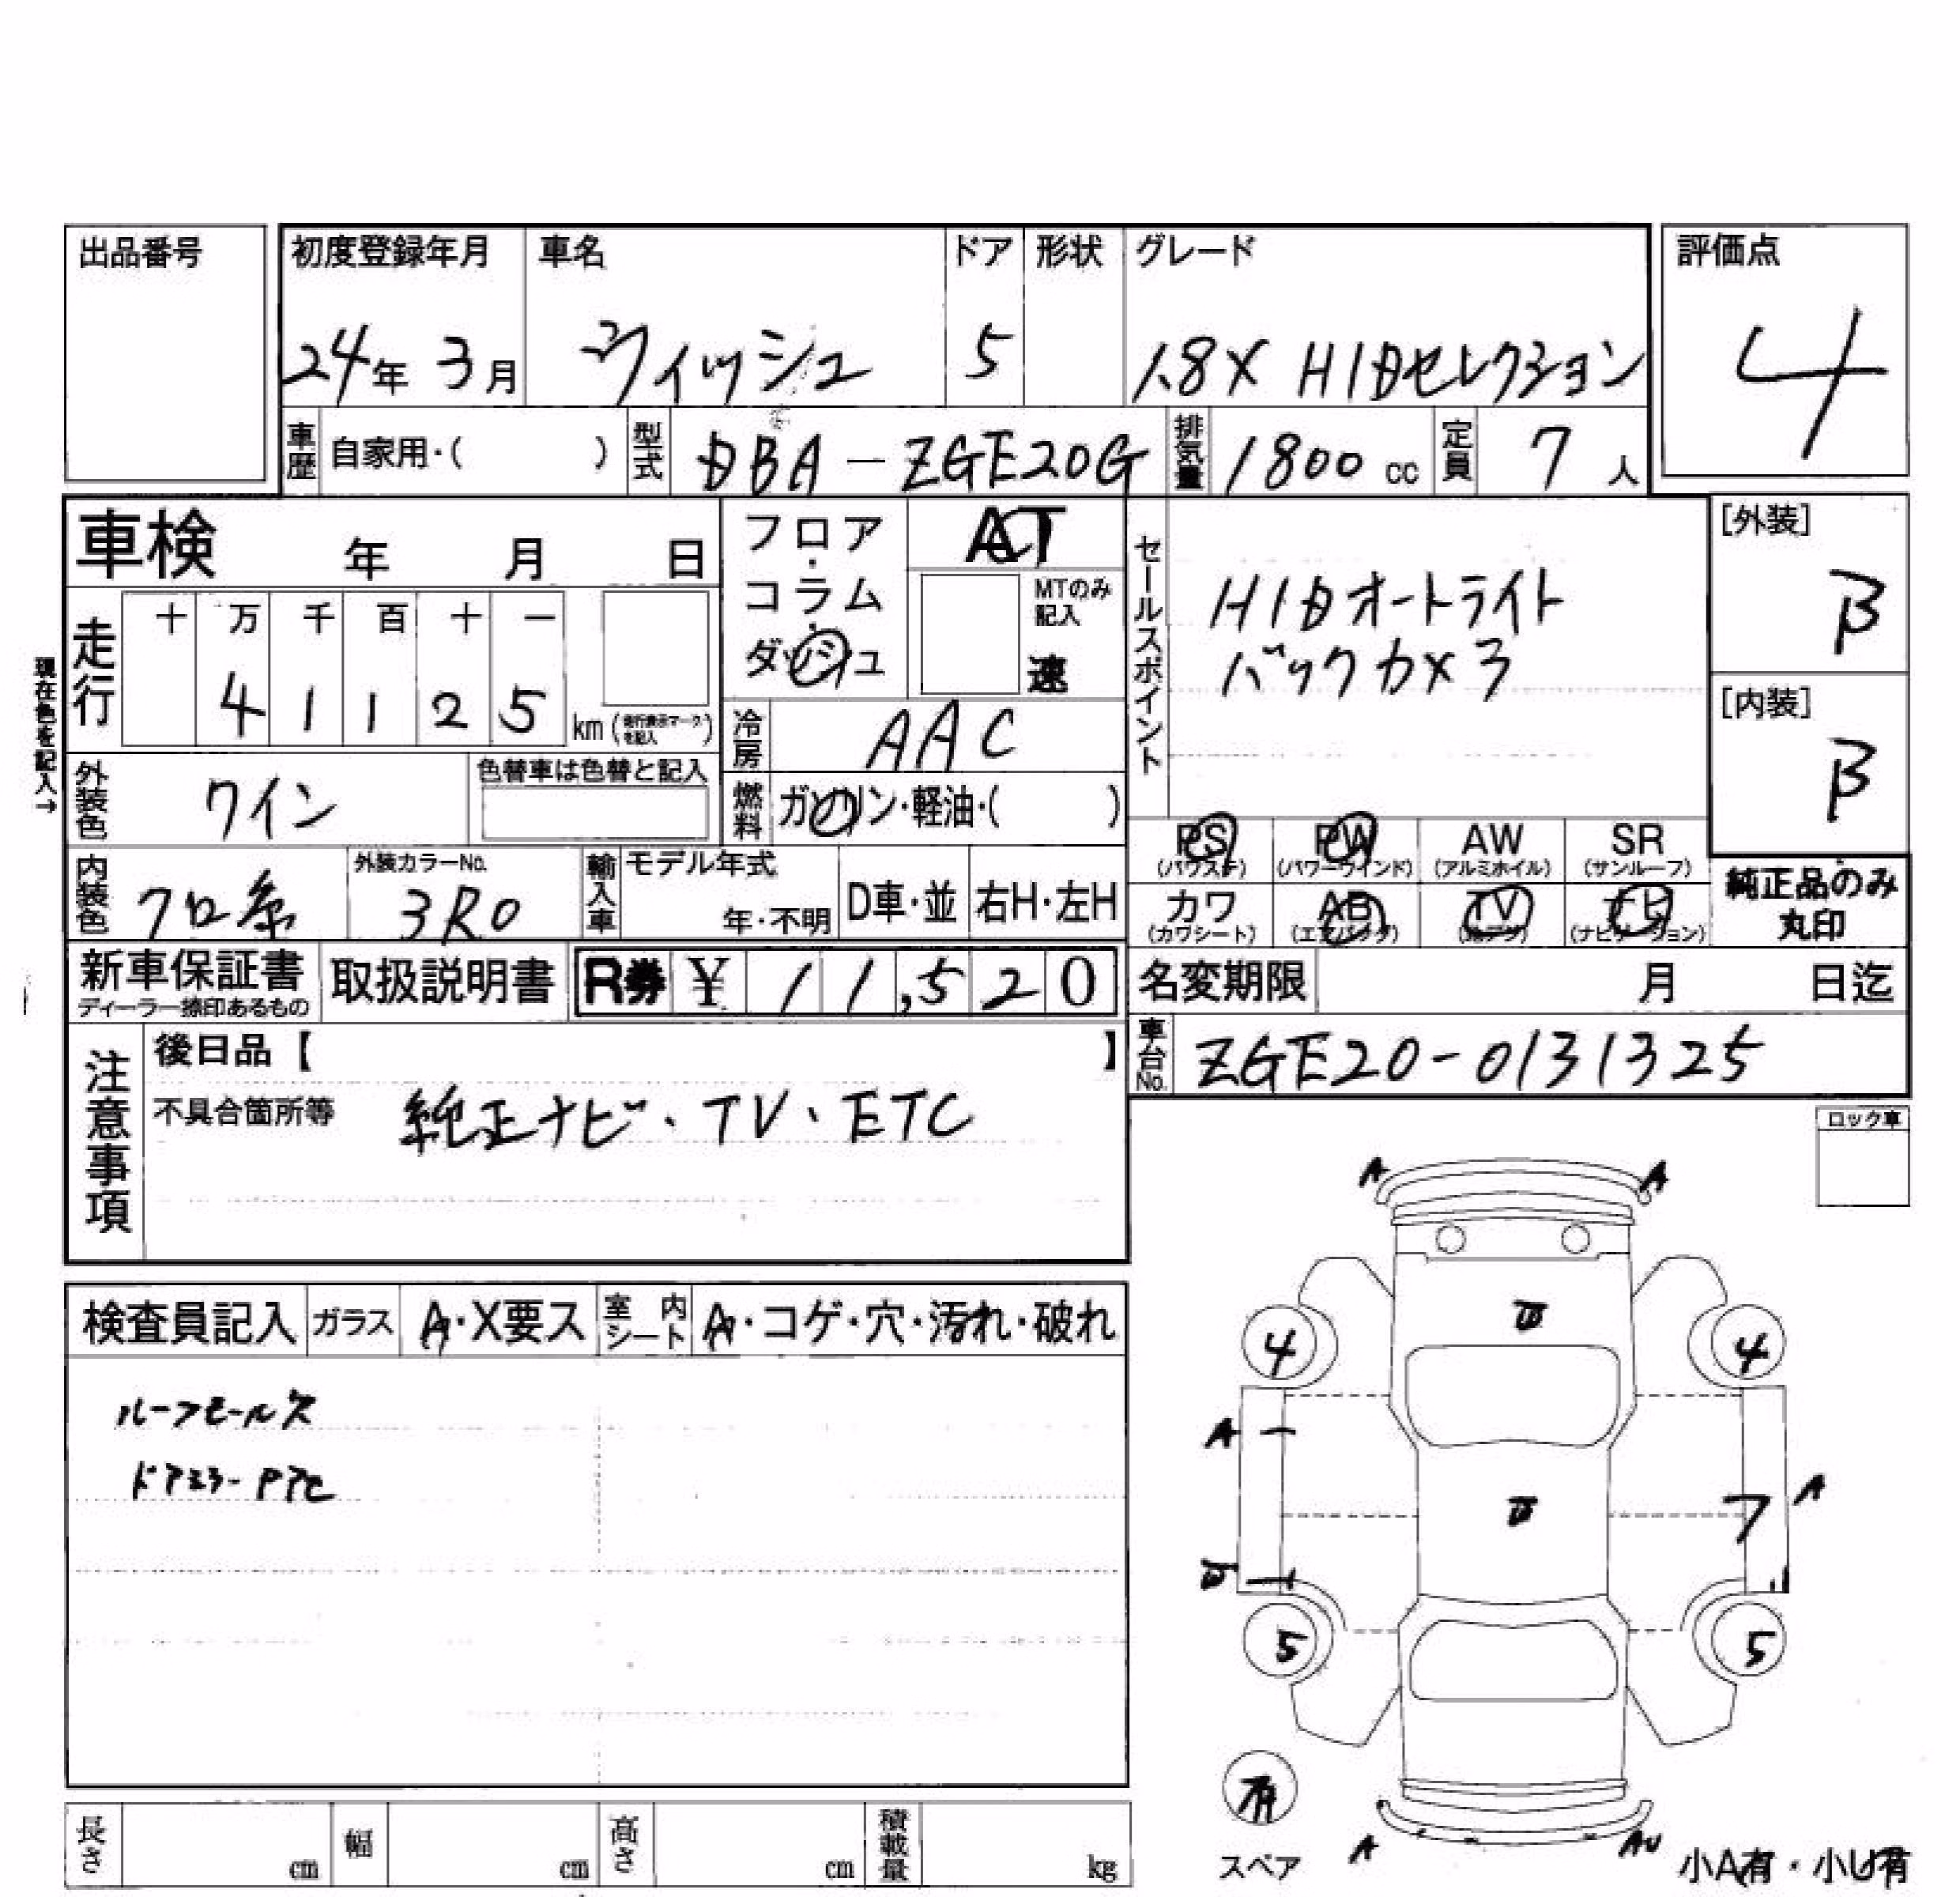 出品番号
初度登録年月 車名 ドア 形状 グレード 評価点
24年 3月 ウィッシュ 5 1.8X HIDセレクション 4
車歴 自家用・( ) 型式 DBA-ZGE20G 排気量 1800 cc 定員 7 人
車検 年 月 日
フロア・コラム・ダッシュ
AT
MTのみ記入
速
セールスポイント
HIDオートライト
バックカメラ
[外装]
B
[内装]
B
現在色を記入→
走行 十 万 千 百 十 一
4 1 1 2 5 km (走行表示マークを記入)
冷房 AAC
外装色 ワイン 色替車は色替と記入
燃料 ガソリン・軽油・( )
PS PW AW SR
(パワステ) (パワーウインド) (アルミホイル) (サンルーフ)
カワ AB TV ナビ
(カワシート) (エアバッグ) (ナビゲーション)
純正品のみ
丸印
内装色 クロ系 外装カラーNo. 3R0 輸入車 モデル年式 年・不明 D車・並 右H・左H
新車保証書 取扱説明書 R券 ¥ 11,520 名変期限 月 日迄
ディーラー捺印あるもの
車台No. ZGE20-0131325
注意事項
後日品【 】
不具合箇所等 純正ナビ、TV、ETC
ロック車
検査員記入 ガラス A・X要ス 室内シート A・コゲ・穴・汚れ・破れ
ルーフモール欠
A A
4 4
A
7 A
5 5
有
スペア
A AU
小A有・小U有
長さ cm 幅 cm 高さ cm 積載量 kg